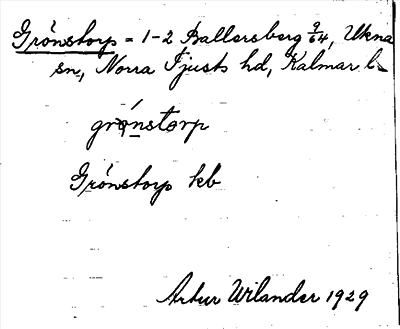 Grönstorp = 1-2 Ballersberg 9/64, Ukna
sn, Norra Tjusts hd, Kalmar l.
grǫ́nstorp
Grönstorp kb
Artur Wilander 1929